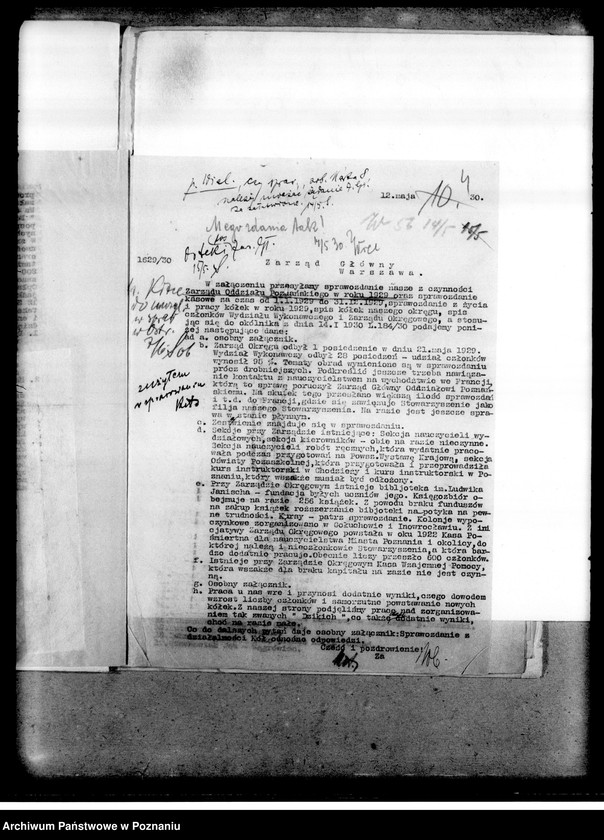 12.maja 30.
1829/30
Zarząd Główny
Warszawa.
W załączeniu przesyłamy sprawozdanie nasze z czynności
Zarządu Oddziału Poznańskiego w roku 1929 oraz sprawozdanie
kasowe na czas od 1.I.1929 do 31.XII.1929, sprawozdanie z życia
i pracy kółek w roku 1929, spis kółek naszego okręgu, spis
członków Wydziału Wykonawczego i Zarządu Okręgowego, a stosu-
jąc się do okólnika z dnia 14.I 1930 L.184/30 podajemy poni-
żej następujące dane:
ad a. osobny załącznik.
b. Zarząd Okręgu odbył 1 posiedzenie w dniu 21.maja 1929.
Wydział Wykonawczy odbył 28 posiedzeń - udział członków
wynosił 95 %. Tematy obrad wymienione są w sprawozdaniu
prócz drobniejszych. Podkreślić jeszcze trzeba nawiąza-
nie kontaktu z nauczycielstwem na wychodźtwie we Francji,
którą to sprawę poruczył Zarząd Główny Oddziałowi Poznań-
skiemu. Na skutek tego przesłano większą ilość sprawozdań
i t.d. do Francji, gdzie się zawiązuje Stowarzyszenie jako
filja naszego Stowarzyszenia. Na razie jest jeszcze spra-
wa w stanie płynnym.
c. Zestawienie znajduje się w sprawozdaniu.
d. Sekcje przy Zarządzie istniejące: Sekcja nauczycieli wy-
działowych, sekcja kierowników - obie na razie nieczynne.
Sekcja nauczycieli robót ręcznych, która wydatnie praco-
wała podczas przygotowań na Powsz. Wystawę Krajową, sekcja
Oświaty Pozaszkolnej, która przygotowała i przeprowadziła
kurs instruktorski w Chodzieży i kurs instruktorski w Po-
znaniu, który wszakże musiał być odłożony.
e. Przy Zarządzie Okręgowym istnieje bibljoteka im. Ludwika
Janischa - fundacja byłych uczniów jego. Księgozbiór o-
bejmuje na razie 256 książek. Z powodu braku funduszów
na zakup książek rozszerzanie bibjoteki na potyka na pew-
ne trudności. Kursy - patrz sprawozdanie. Kolonje wypo-
czynkowe zorganizowano w Gołuchowie i Inowrocławiu. Z ini
cjatywy Zarządu Okręgowego powstała w roku 1922 Kasa Po-
śmiertna dla nauczycielstwa Miasta Poznania i okolicy, do
której należą i nieczłonkowie Stowarzyszenia, a która bar-
dzo dodatnio pracuje. Obecnie liczy przeszło 600 członków.
f. Istnieje przy Zarządzie Okręgowym Kasa Wzajemnej Pomocy,
która wszakże dla braku kapitału na razie nie jest czyn-
ną.
g. Osobny załącznik.
h. Praca u nas wre i przynosi dodatnie wyniki, czego dowodem
wzrost liczby członków i samorzutne powstawanie nowych
kółek. Z naszej strony podjęliśmy pracę nad zorganizowa-
niem tak zwanych " Dzikich ", co także dodatnie wyniki,
choć na razie małe.
Co do dalszych pytań daje osobny załącznik: Sprawozdanie z
działalności Kół odnośne odpowiedzi.
Cześć i pozdrowienie!
Za
Archiwum Państwowe w Poznaniu